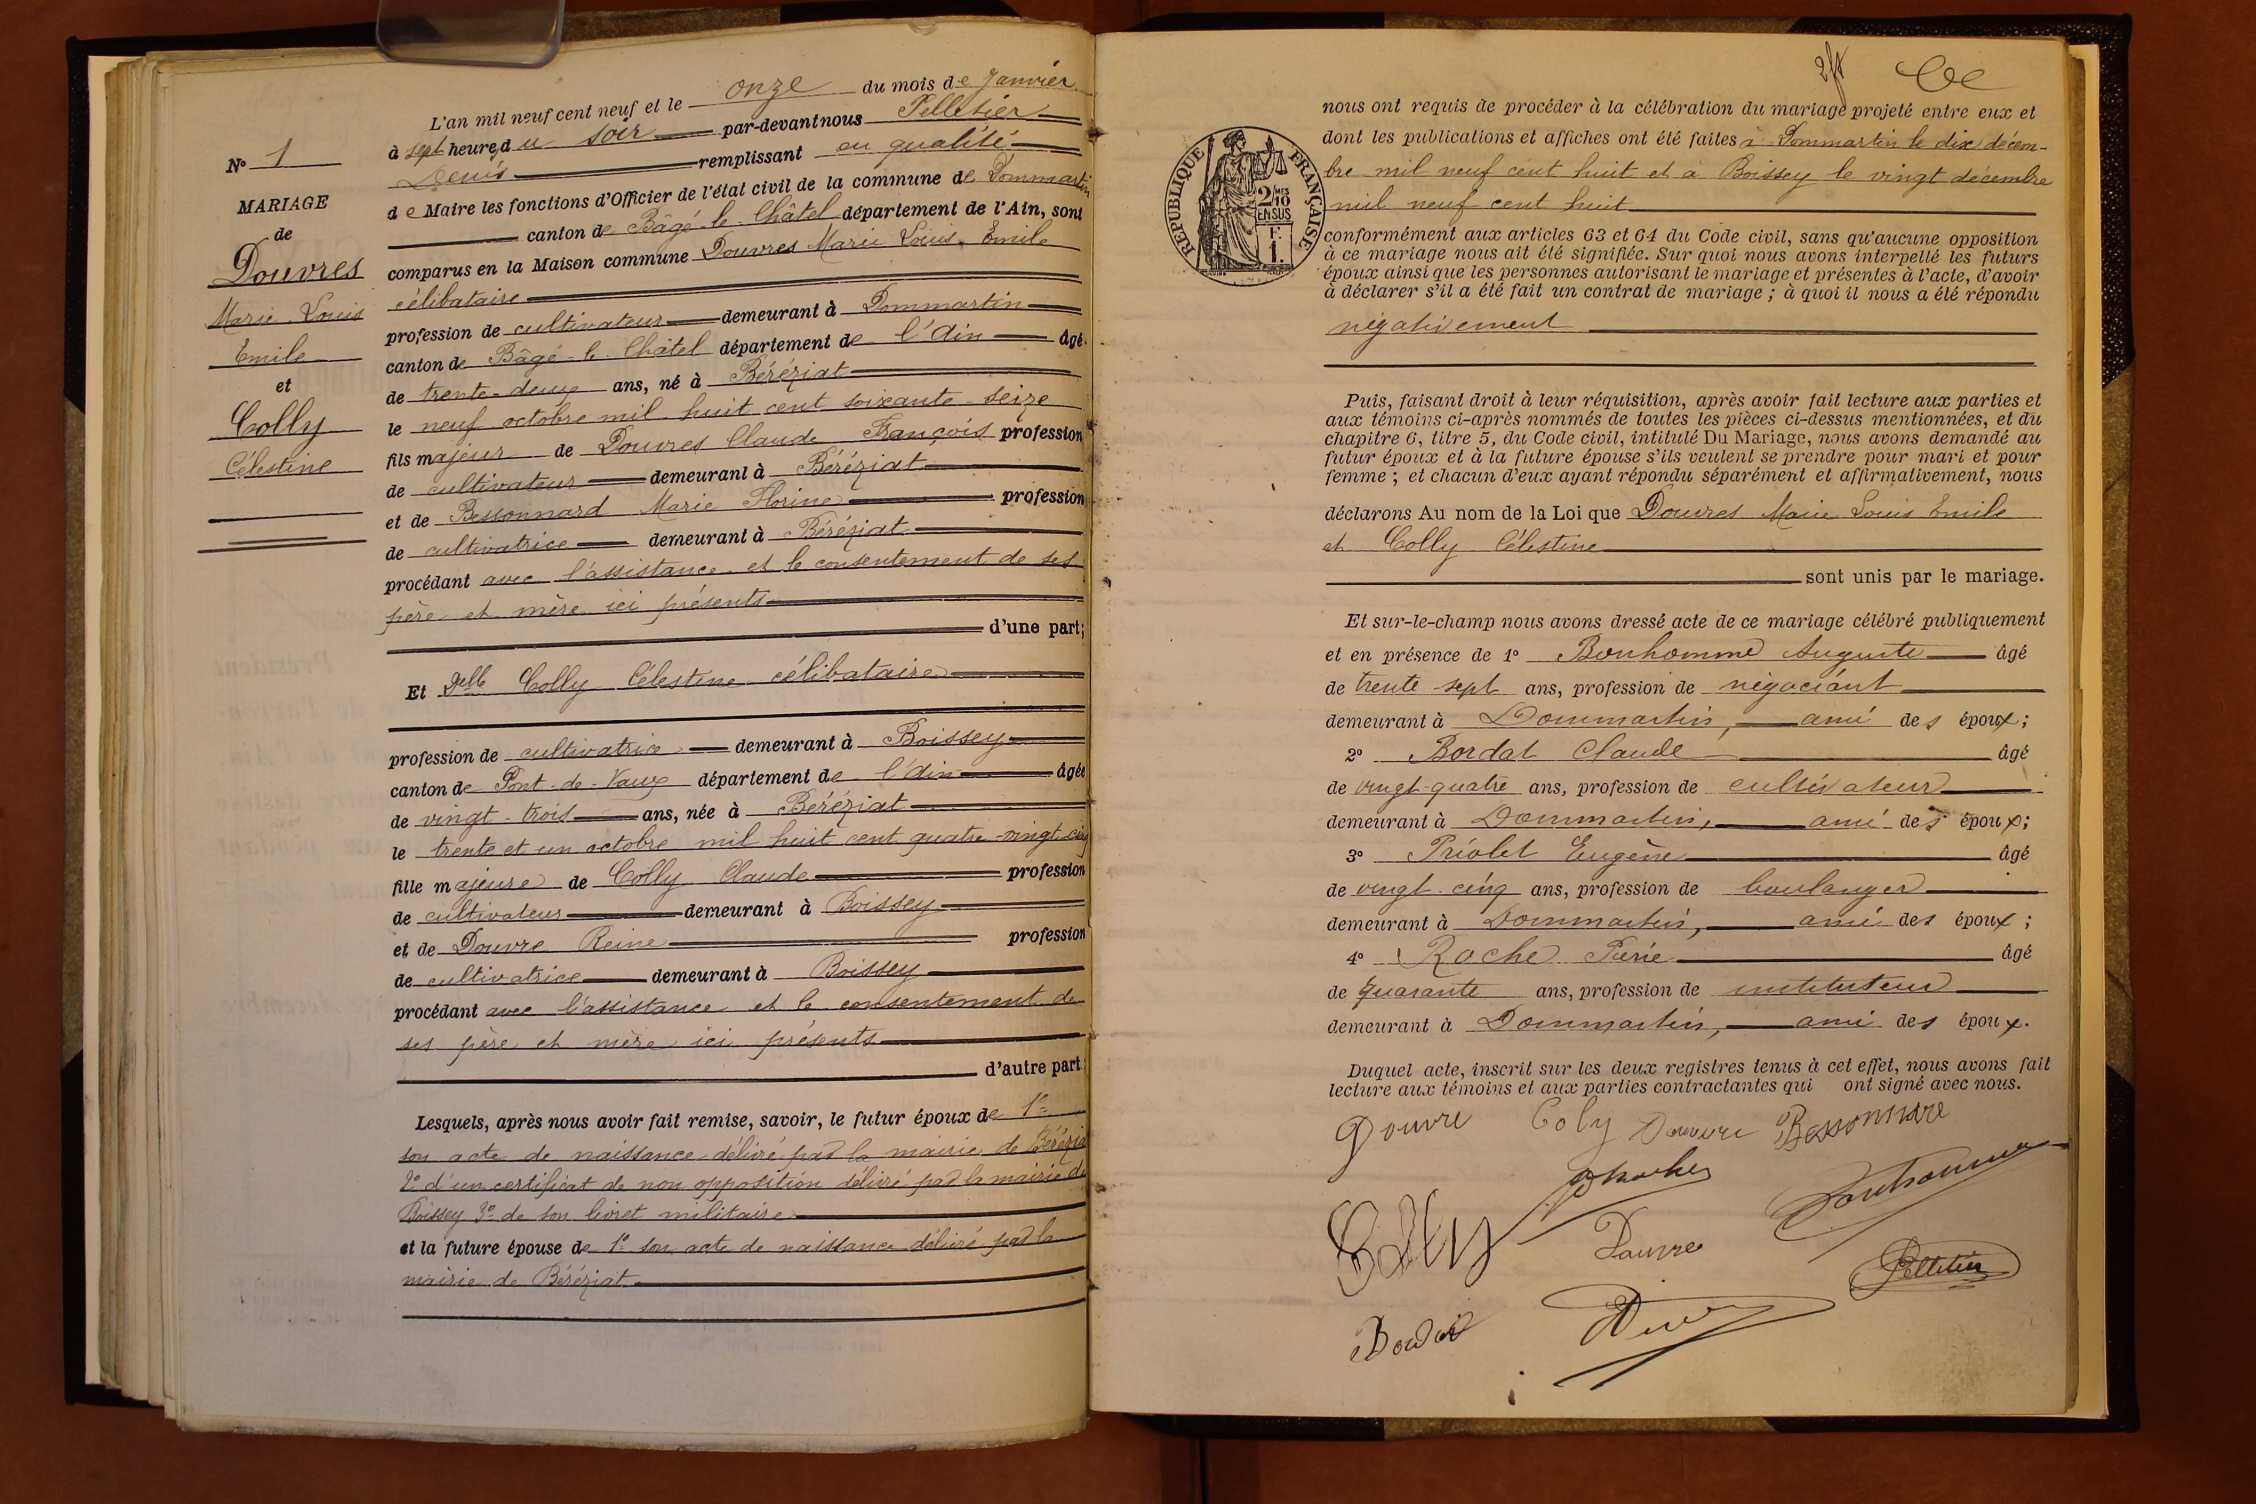 N° 1
MARIAGE
de
Douvres
Marie Louis
Emile
et
Colly
Célestine
L'an mil neuf cent neuf et le onze du mois de Janvier
à sept heures du soir par-devant nous Pelletier
Denis remplissant en qualité
de Maire les fonctions d'Officier de l'état civil de la commune de Dommartin
canton de Bâgé-le-Châtel département de l'Ain, sont
comparus en la Maison commune Douvres Marie Louis Emile
célibataire
profession de cultivateur demeurant à Dommartin
canton de Bâgé-le-Châtel département de l'Ain âgé
de trente-deux ans, né à Béréziat
le neuf octobre mil huit cent soixante-seize
fils majeur de Douvres Claude François profession
de cultivateur demeurant à Béréziat
et de Bessonnard Marie Florine profession
de cultivatrice demeurant à Béréziat
procédant avec l'assistance et le consentement de ses
père et mère ici présents
d'une part;
Et Delle Colly Célestine célibataire
profession de cultivatrice demeurant à Boissey
canton de Pont-de-Vaux département de l'Ain âgée
de vingt-trois ans, née à Béréziat
le trente et un octobre mil huit cent quatre-vingt-cinq
fille majeure de Colly Claude profession
de cultivateur demeurant à Boissey
et de Douvre Reine profession
de cultivatrice demeurant à Boissey
procédant avec l'assistance et le consentement de
ses père et mère ici présents
d'autre part
Lesquels, après nous avoir fait remise, savoir, le futur époux de 1°
son acte de naissance délivré par la mairie de Bérézia
2° d'un certificat de non opposition délivré par la mairie de
Boissey 3° de son livret militaire
et la future épouse de 1° son acte de naissance délivré par la
mairie de Béréziat
RÉPUBLIQUE FRANÇAISE
2/10 MES
EN SUS
F.
1.
nous ont requis de procéder à la célébration du mariage projeté entre eux et
dont les publications et affiches ont été faites à Dommartin le dix décem-
bre mil neuf cent huit et à Boissey le vingt décembre
mil neuf cent huit
conformément aux articles 63 et 64 du Code civil, sans qu'aucune opposition
à ce mariage nous ait été signifiée. Sur quoi nous avons interpellé les futurs
époux ainsi que les personnes autorisant le mariage et présentes à l'acte, d'avoir
à déclarer s'il a été fait un contrat de mariage ; à quoi il nous a été répondu
négativement
Puis, faisant droit à leur réquisition, après avoir fait lecture aux parties et
aux témoins ci-après nommés de toutes les pièces ci-dessus mentionnées, et du
chapitre 6, titre 5, du Code civil, intitulé Du Mariage, nous avons demandé au
futur époux et à la future épouse s'ils veulent se prendre pour mari et pour
femme ; et chacun d'eux ayant répondu séparément et affirmativement, nous
déclarons Au nom de la Loi que Douvres Marie Louis Emile
et Colly Célestine
sont unis par le mariage.
Et sur-le-champ nous avons dressé acte de ce mariage célébré publiquement
et en présence de 1° Bonhomme Auguste âgé
de trente sept ans, profession de négociant
demeurant à Dommartin, ami des époux;
2° Bordat Claude âgé
de vingt-quatre ans, profession de cultivateur
demeurant à Dommartin, ami des époux;
3° Priolet Eugène âgé
de vingt-cinq ans, profession de boulanger
demeurant à Dommartin, ami des époux ;
4° Roche Pierre âgé
de quarante ans, profession de instituteur
demeurant à Dommartin, ami des époux.
Duquel acte, inscrit sur les deux registres tenus à cet effet, nous avons fait
lecture aux témoins et aux parties contractantes qui ont signé avec nous.
Douvre Coly Douvre Bessonnard
Bonhomme
Colly
Douvre
Pelletier
Bordat